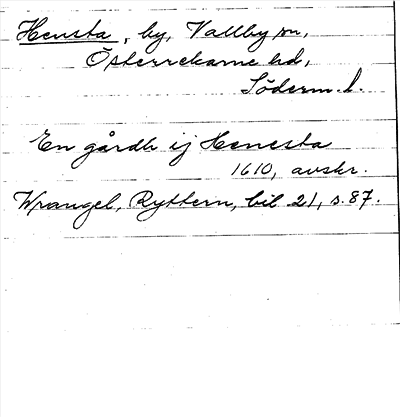 Hensta, by, Vallby sn,
Österrekarne hd,
Söderm. l.
En gårdh ij Henesta
1610, avskr.
Wrangel, Ryttern, bil 21, s. 87.